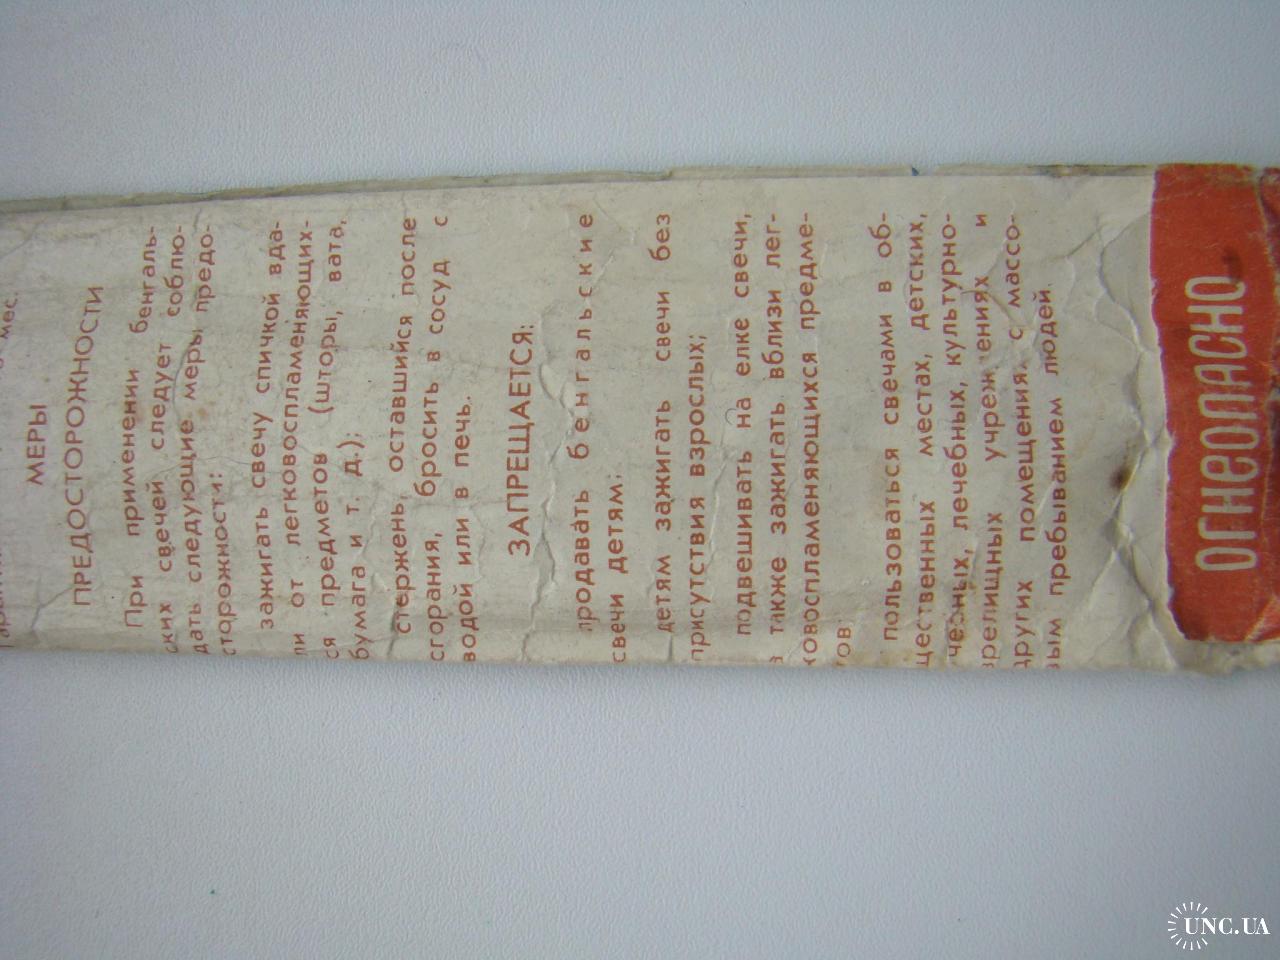 6 мес.
МЕРЫ
ПРЕДОСТОРОЖНОСТИ
При применении бенгаль-
ских свечей следует соблю-
дать следующие меры предо-
сторожности:
зажигать свечу спичкой вда-
ли от легковоспламеняющих-
ся предметов (шторы, вата,
бумага и т. д.);
стержень, оставшийся после
сгорания, бросить в сосуд с
водой или в печь.
ЗАПРЕЩАЕТСЯ:
продавать бенгальские
свечи детям;
детям зажигать свечи без
присутствия взрослых;
подвешивать на елке свечи,
а также зажигать вблизи лег-
ковоспламеняющихся предме-
тов;
пользоваться свечами в об-
щественных местах, детских,
лечебных, культурно-
зрелищных учреждениях и
других помещениях с массо-
вым пребыванием людей.
ОГНЕОПАСНО
UNC.UA